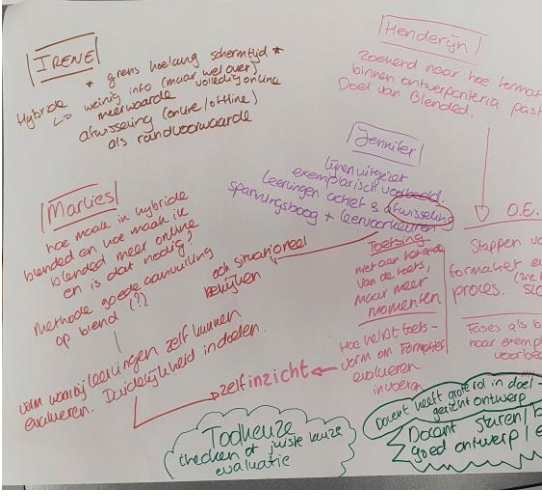 IRENE
* grens hoelang schermtijd *
Hybride weinig info (maar wel over)
↳ meerwaarde volledig online
afwisseling (online/offline)
als randvoorwaarde
Henderijn
Zoekend naar hoe format
binnen ontwerpcriteria past
Doel van Blended.
Jennifer
lijnen uitgezet
exemplarisch voorbeeld.
leerlingen actief & afwisseling
spanningsboog + leervoorkeuren
Marlies
hoe maak in hybride
blended en hoe maak ik
blended meer online
en is dat nodig,
methode goede aanvulling
op blend (?)
ook situationeel
bekijken
vorm waarbij leerlingen zelf kunnen
evalueren. Duidelijkheid in doelen.
→ zelfinzicht ←
Toetsing
niet aan het einde
van de toets,
maar meer
momenten
Hoe helpt toets-
vorm om Formatief
evalueren
invoeren
O.E.
Stappen
formatief
proces.
Fases als
naar
Toolkeuze
checken of juiste keuze
evaluatie
Docent heeft grote rol in doel-
gericht ontwerp
Docent sturen/
goed ontwerp/